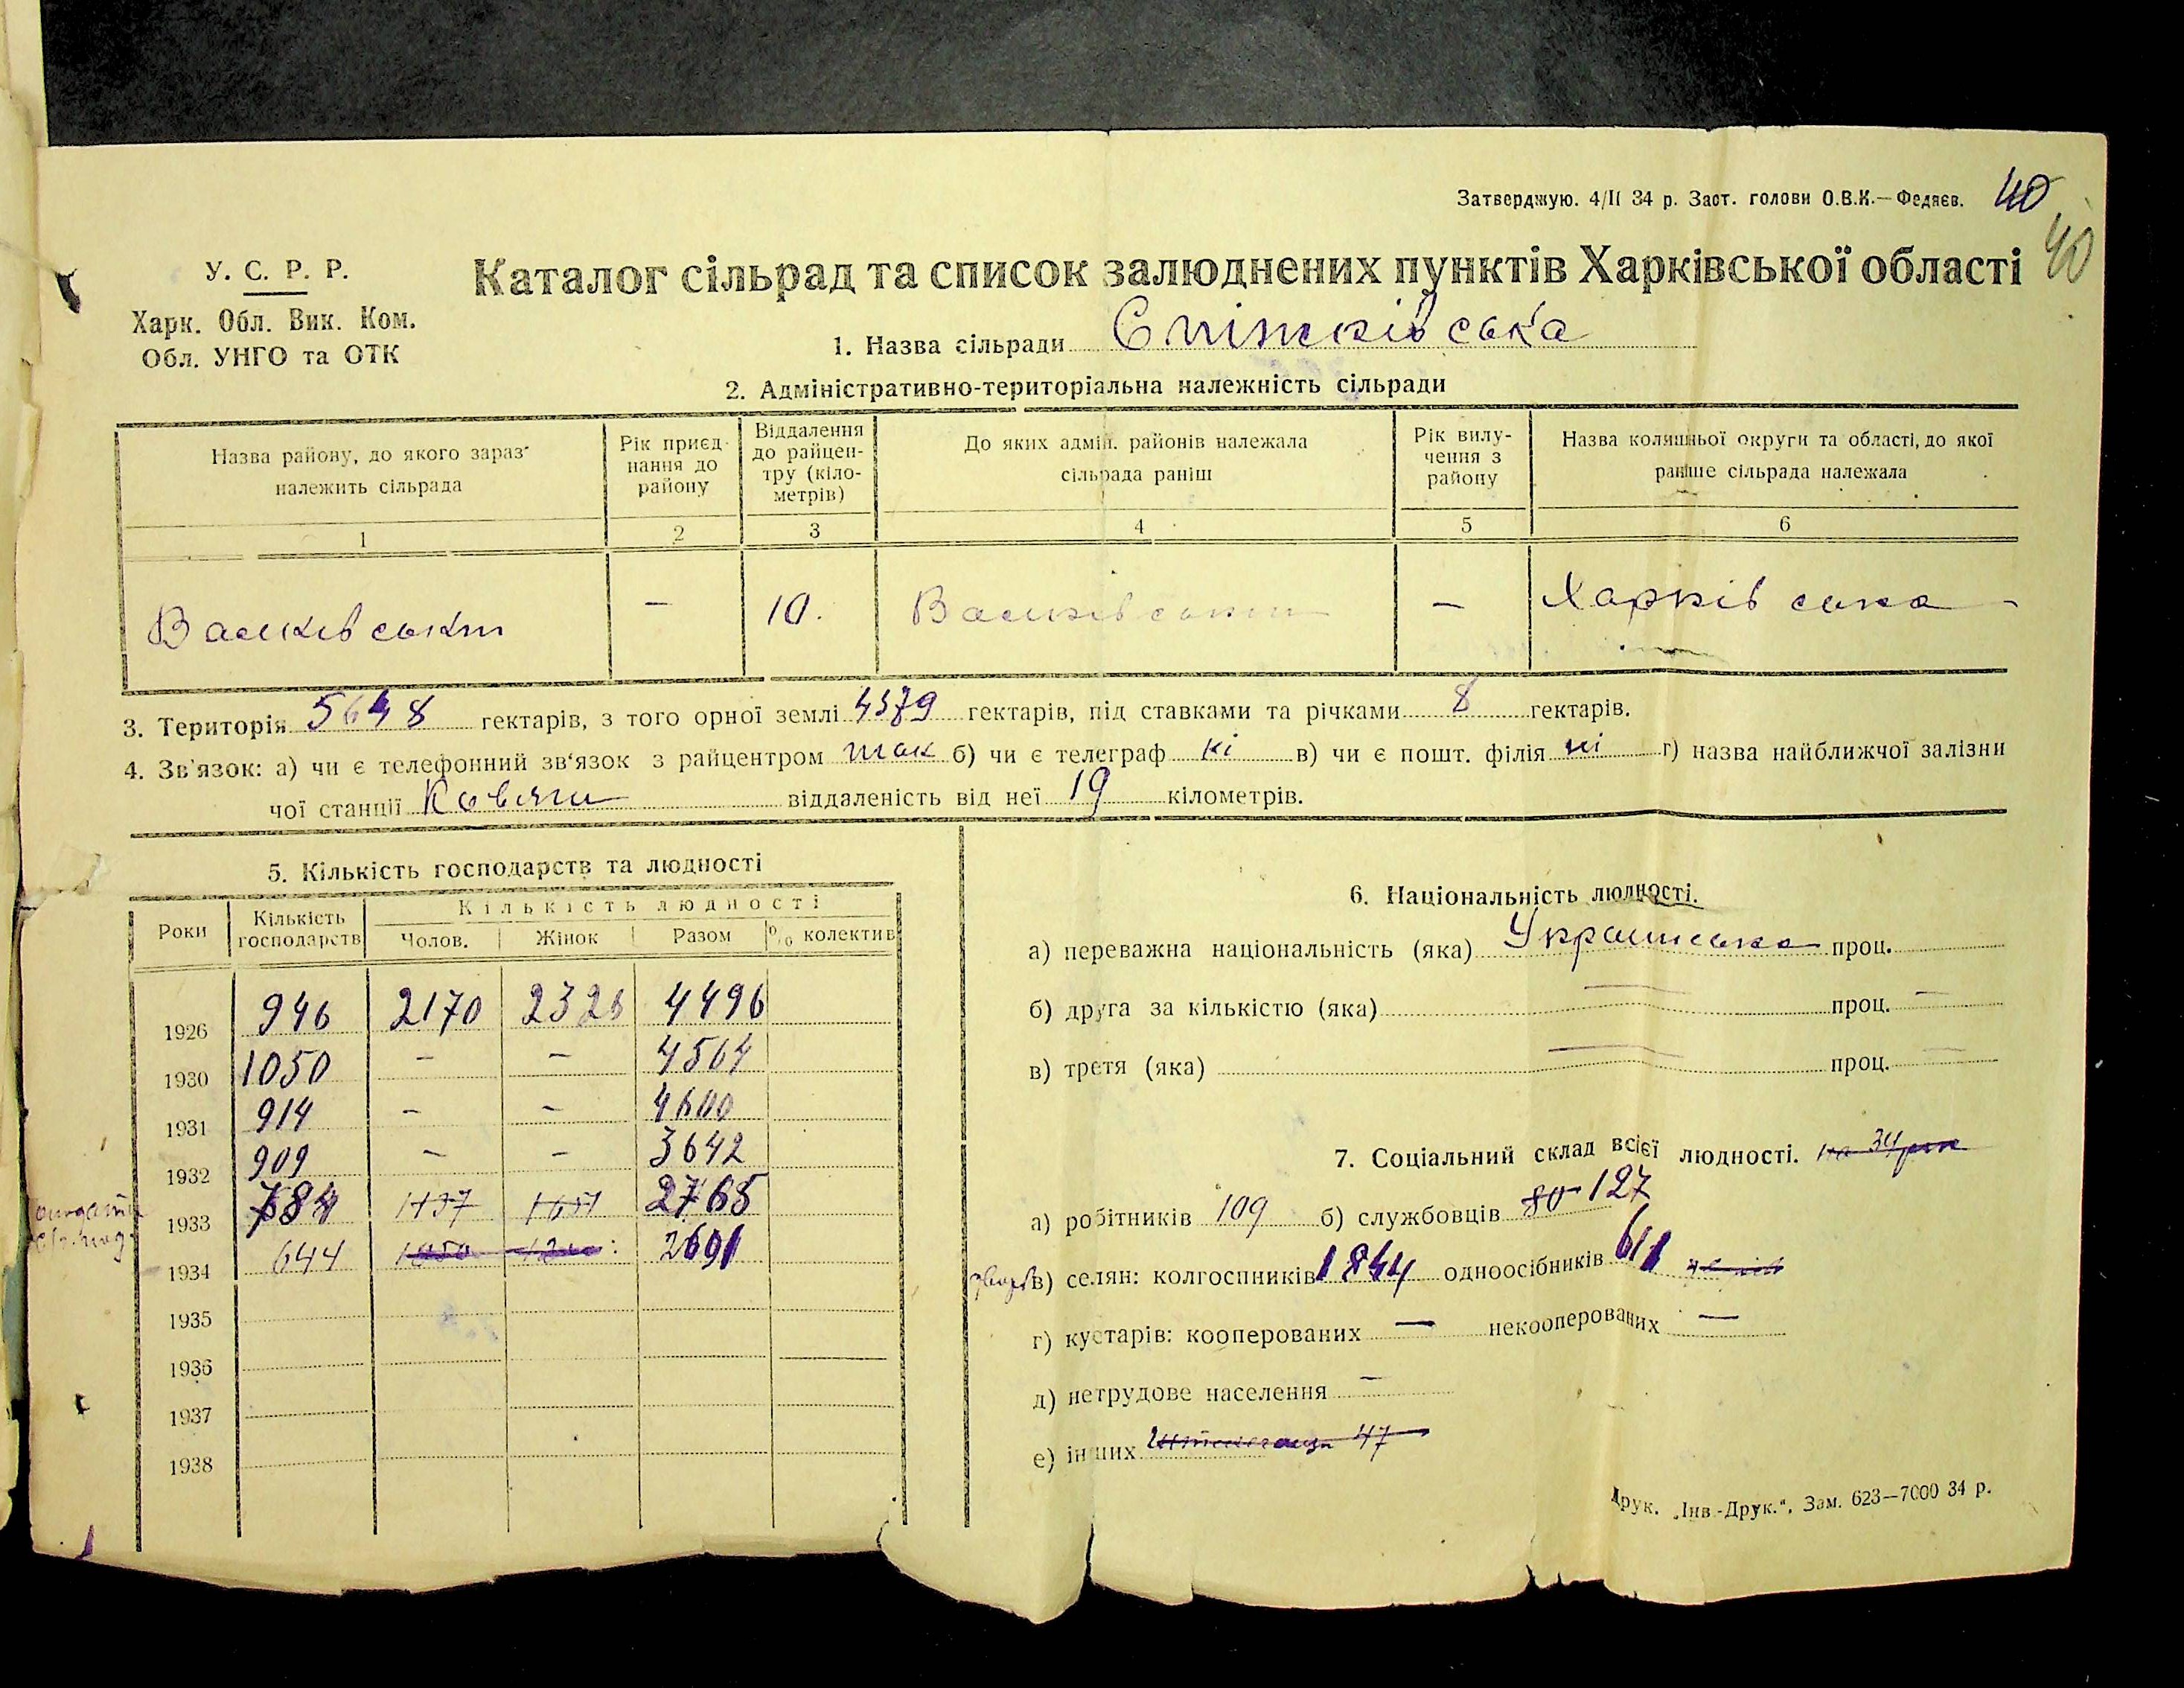 Затверджую. 4/II 34 р. Заст. голови О.В.К.—Федяєв. 40
40
У. С. Р. Р.
Харк. Обл. Вик. Ком.
Обл. УНГО та ОТК
Каталог сільрад та список залюднених пунктів Харківської області
1. Назва сільради
2. Адміністративно-територіальна належність сільради
Назва району, до якого зараз належить сільрада
Рік приєднання до району
Віддалення до райцентру (кілометрів)
До яких адмін. районів належала сільрада раніш
Рік вилучення з району
Назва колишньої округи та області, до якої раніше сільрада належала
1 2 3 4 5 6
Валківський — 10. Валківський — Харківська
3. Територія 5648 гектарів, з того орної землі 4379 гектарів, під ставками та річками 8 гектарів.
4. Зв'язок: а) чи є телефонний зв'язок з райцентром так б) чи є телеграф ні в) чи є пошт. філія ні г) назва найближчої залізни
чої станції Ков'яги віддаленість від неї 19 кілометрів.
5. Кількість господарств та людності
Роки Кількість господарств Кількість людності
Чолов. Жінок Разом % колектив
1926 946 2170 2326 4496
1930 1050 — — 4564
1931 914 — — 4600
1932 909 — — 3642
1933 784 1137 2765
1934 644 1050 2691
1935
1936
1937
1938
6. Національність людності.
а) переважна національність (яка) Українська проц.
б) друга за кількістю (яка) — проц. —
в) третя (яка) — проц. —
7. Соціальний склад всієї людності. на 34 рік
а) робітників 109 б) службовців 80 127
в) селян: колгоспників 1844 одноосібників 611
г) кустарів: кооперованих — некооперованих —
д) нетрудове населення —
е) інших 47
Друк. „Інв.-Друк.“, Зам. 623—7000 34 р.